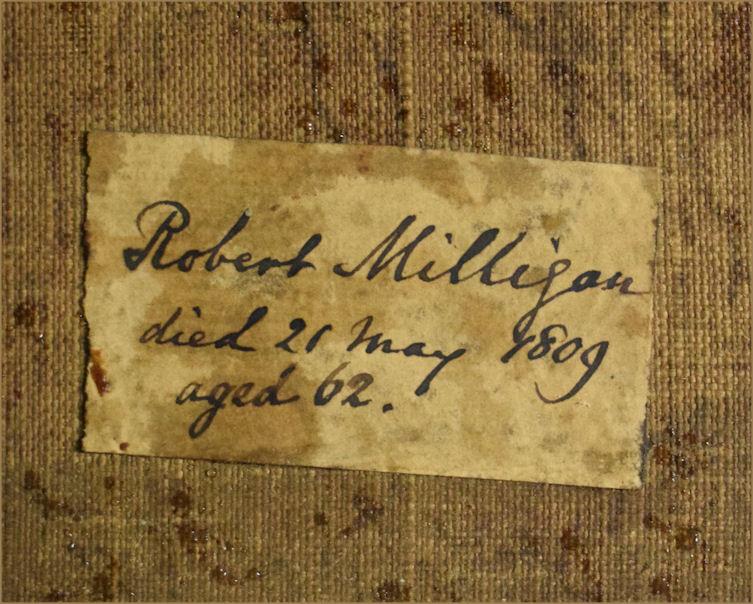 Robert Milligan
died 21 May 1809
aged 62.